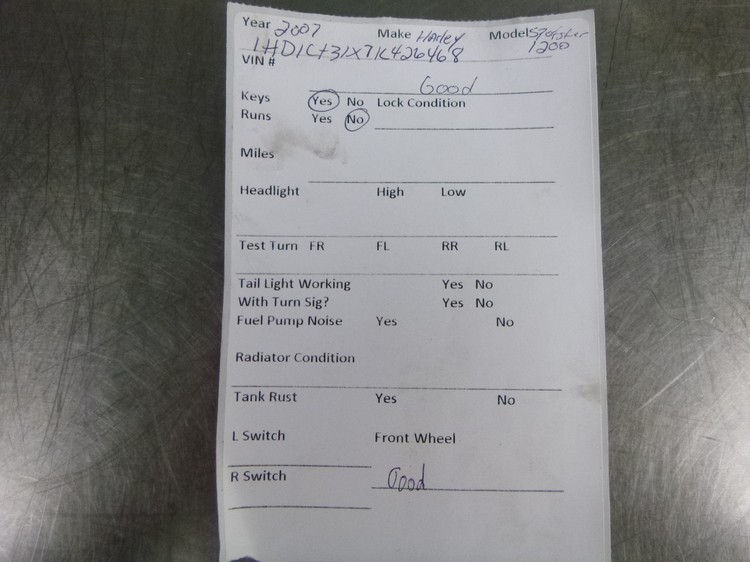 Year 2007 Make Harley Model Sportster
1HD1CT31X71K426468 1200
VIN #
Good
Keys Yes No Lock Condition
Runs Yes No
Miles
Headlight High Low
Test Turn FR FL RR RL
Tail Light Working Yes No
With Turn Sig? Yes No
Fuel Pump Noise Yes No
Radiator Condition
Tank Rust Yes No
L Switch Front Wheel
R Switch Good